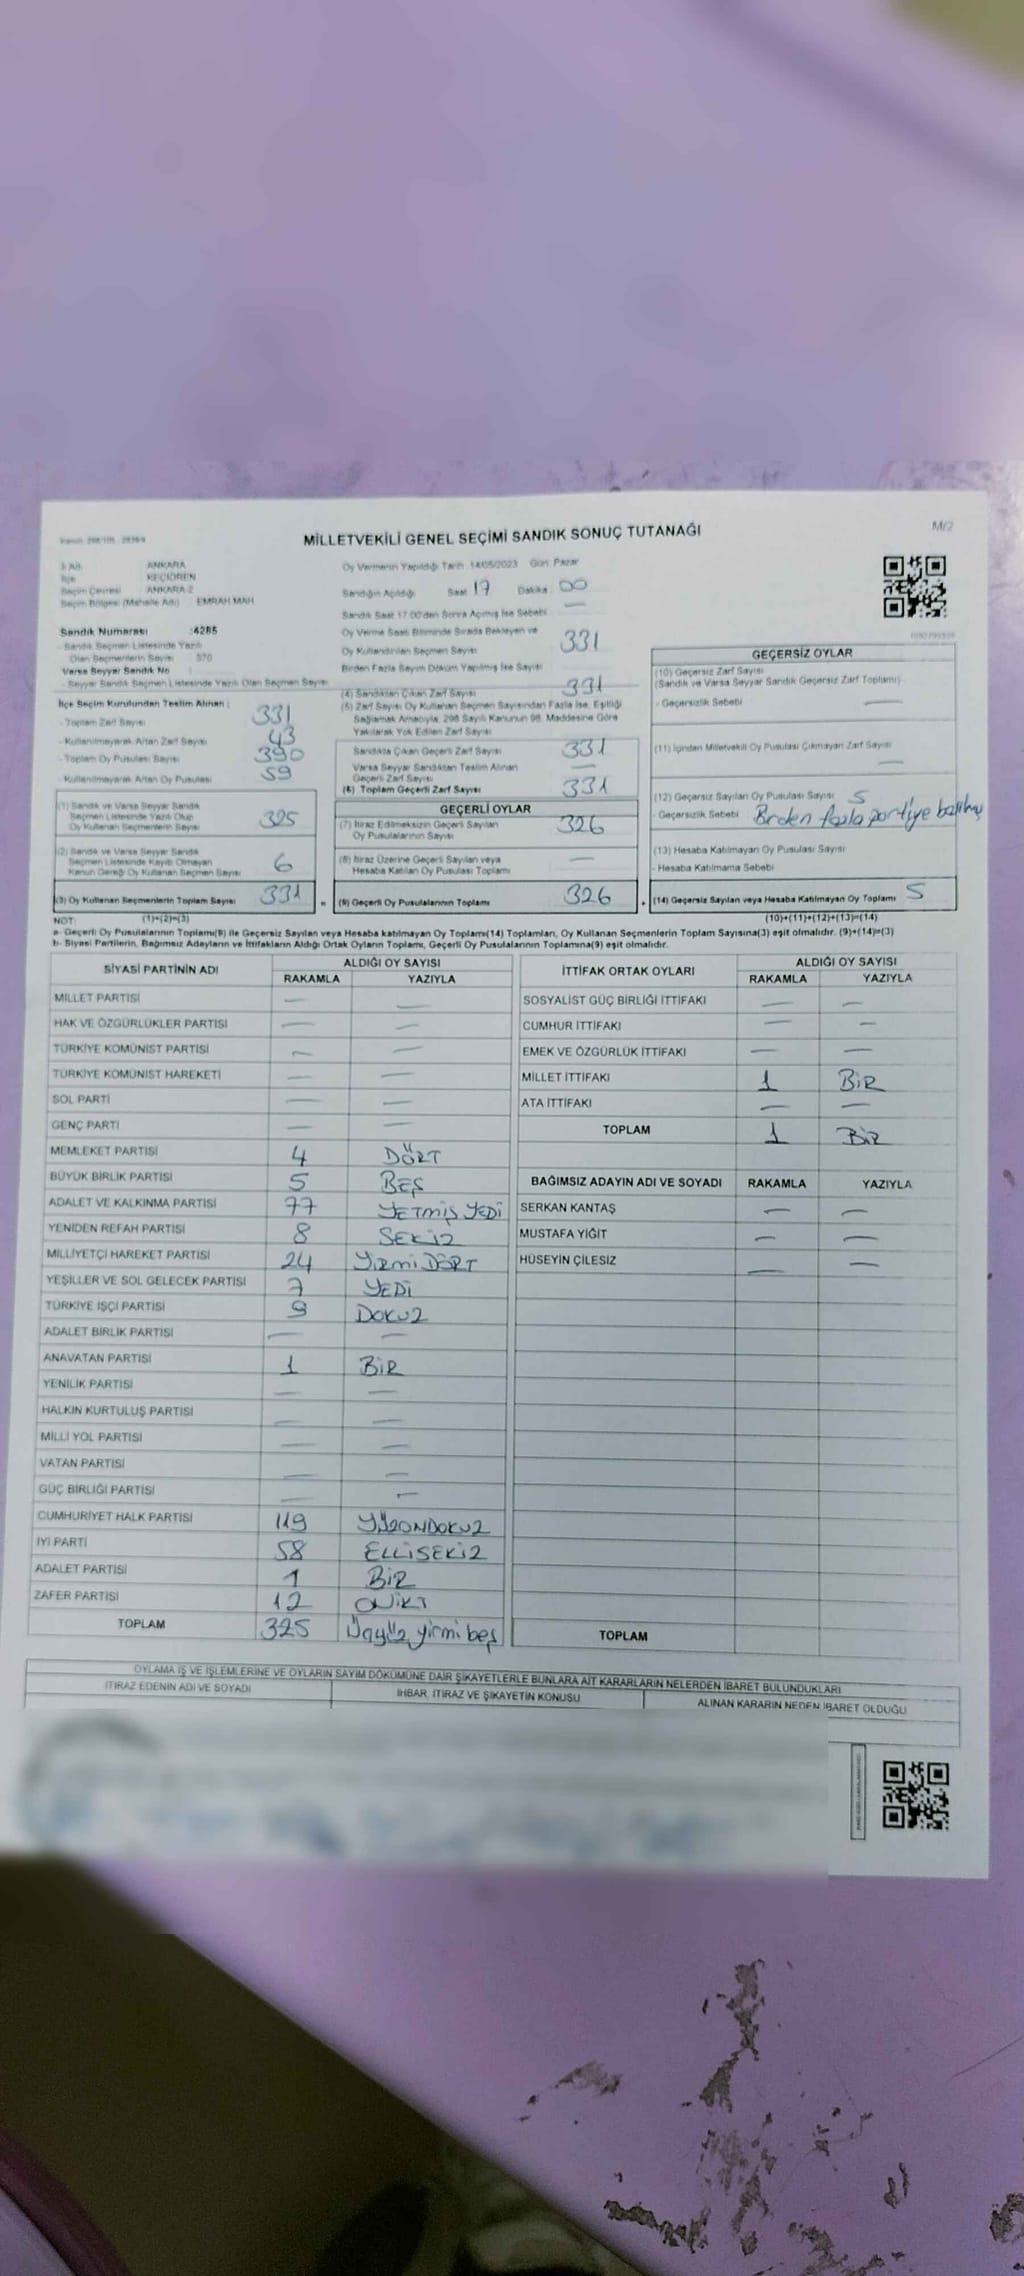 MİLLETVEKİLİ GENEL SEÇİMİ SANDIK SONUÇ TUTANAĞI
M/2
İl Adı ANKARA
İlçe KEÇİÖREN
Seçim Çevresi ANKARA-2
Seçim Bölgesi (Mahalle Adı) EMRAH MAH.
Sandık Numarası :4285
Sandık Seçmen Listesinde Yazılı
Olan Seçmenlerin Sayısı : 370
Varsa Seyyar Sandık No
- Seyyar Sandık Seçmen Listesinde Yazılı Olan Seçmen Sayısı
İlçe Seçim Kurulundan Teslim Alınan :
- Toplam Zarf Sayısı 331
- Kullanılmayarak Artan Zarf Sayısı 43
- Toplam Oy Pusulası Sayısı 390
- Kullanılmayarak Artan Oy Pusulası 59
(1) Sandık ve Varsa Seyyar Sandık
Seçmen Listesinde Yazılı Olup
Oy Kullanan Seçmenlerin Sayısı 325
(2) Sandık ve Varsa Seyyar Sandık
Seçmen Listesinde Kayıtlı Olmayan
Kanun Gereği Oy Kullanan Seçmen Sayısı 6
(3) Oy Kullanan Seçmenlerin Toplam Sayısı 331 =
(1)+(2)=(3)
Oy Vermenin Yapıldığı Tarih 14/05/2023 Gün: Pazar
Sandığın Açıldığı Saat 17 Dakika 00
Sandık Saat 17:00'den Sonra Açılmış İse Sebebi —
Oy Verme Saati Bitiminde Sırada Bekleyen ve
Oy Kullandırılan Seçmen Sayısı 331
Birden Fazla Sayım Döküm Yapılmış İse Sayısı
(4) Sandıktan Çıkan Zarf Sayısı 331
(5) Zarf Sayısı Oy Kullanan Seçmen Sayısından Fazla İse, Eşitliği
Sağlamak Amacıyla, 298 Sayılı Kanunun 98. Maddesine Göre
Yakılarak Yok Edilen Zarf Sayısı
Sandıkta Çıkan Geçerli Zarf Sayısı 331
Varsa Seyyar Sandıktan Teslim Alınan
Geçerli Zarf Sayısı —
(6) Toplam Geçerli Zarf Sayısı 331
GEÇERLİ OYLAR
(7) İtiraz Edilmeksizin Geçerli Sayılan
Oy Pusulalarının Sayısı 326
(8) İtiraz Üzerine Geçerli Sayılan veya
Hesaba Katılan Oy Pusulası Toplamı —
(9) Geçerli Oy Pusulalarının Toplamı 326 +
GEÇERSİZ OYLAR
(10) Geçersiz Zarf Sayısı
(Sandık ve Varsa Seyyar Sandık Geçersiz Zarf Toplamı)
- Geçersizlik Sebebi —
(11) İçinden Milletvekili Oy Pusulası Çıkmayan Zarf Sayısı
—
(12) Geçersiz Sayılan Oy Pusulası Sayısı 5
- Geçersizlik Sebebi Birden fazla partiye
(13) Hesaba Katılmayan Oy Pusulası Sayısı
- Hesaba Katılmama Sebebi
(14) Geçersiz Sayılan veya Hesaba Katılmayan Oy Toplamı 5
(10)+(11)+(12)+(13)=(14)
NOT:
a- Geçerli Oy Pusulalarının Toplamı(9) ile Geçersiz Sayılan veya Hesaba katılmayan Oy Toplamı(14) Toplamları, Oy Kullanan Seçmenlerin Toplam Sayısına(3) eşit olmalıdır. (9)+(14)=(3)
b- Siyasi Partilerin, Bağımsız Adayların ve İttifakların Aldığı Ortak Oyların Toplamı, Geçerli Oy Pusulalarının Toplamına(9) eşit olmalıdır.
SİYASİ PARTİNİN ADI ALDIĞI OY SAYISI
RAKAMLA YAZIYLA
MİLLET PARTİSİ — —
HAK VE ÖZGÜRLÜKLER PARTİSİ — —
TÜRKİYE KOMÜNİST PARTİSİ — —
TÜRKİYE KOMÜNİST HAREKETİ — —
SOL PARTİ — —
GENÇ PARTİ — —
MEMLEKET PARTİSİ 4 DÖRT
BÜYÜK BİRLİK PARTİSİ 5 BEŞ
ADALET VE KALKINMA PARTİSİ 77 YETMİŞ YEDİ
YENİDEN REFAH PARTİSİ 8 SEKİZ
MİLLİYETÇİ HAREKET PARTİSİ 24 YİRMİ DÖRT
YEŞİLLER VE SOL GELECEK PARTİSİ 7 YEDİ
TÜRKİYE İŞÇİ PARTİSİ 9 DOKUZ
ADALET BİRLİK PARTİSİ — —
ANAVATAN PARTİSİ 1 BİR
YENİLİK PARTİSİ — —
HALKIN KURTULUŞ PARTİSİ — —
MİLLİ YOL PARTİSİ — —
VATAN PARTİSİ — —
GÜÇ BİRLİĞİ PARTİSİ — —
CUMHURİYET HALK PARTİSİ 119 YÜZONDOKUZ
İYİ PARTİ 58 ELLİSEKİZ
ADALET PARTİSİ 1 BİR
ZAFER PARTİSİ 12 ONİKİ
TOPLAM 325 Üçyüz yirmi beş
İTTİFAK ORTAK OYLARI ALDIĞI OY SAYISI
RAKAMLA YAZIYLA
SOSYALİST GÜÇ BİRLİĞİ İTTİFAKI — —
CUMHUR İTTİFAKI — —
EMEK VE ÖZGÜRLÜK İTTİFAKI — —
MİLLET İTTİFAKI 1 BİR
ATA İTTİFAKI — —
TOPLAM 1 BİR
BAĞIMSIZ ADAYIN ADI VE SOYADI RAKAMLA YAZIYLA
SERKAN KANTAŞ — —
MUSTAFA YİĞİT — —
HÜSEYİN ÇİLESİZ — —
TOPLAM
OYLAMA İŞ VE İŞLEMLERİNE VE OYLARIN SAYIM DÖKÜMÜNE DAİR ŞİKAYETLERLE BUNLARA AİT KARARLARIN NELERDEN İBARET BULUNDUKLARI
İTİRAZ EDENİN ADI VE SOYADI İHBAR, İTİRAZ VE ŞİKAYETİN KONUSU ALINAN KARARIN NEDEN İBARET OLDUĞU